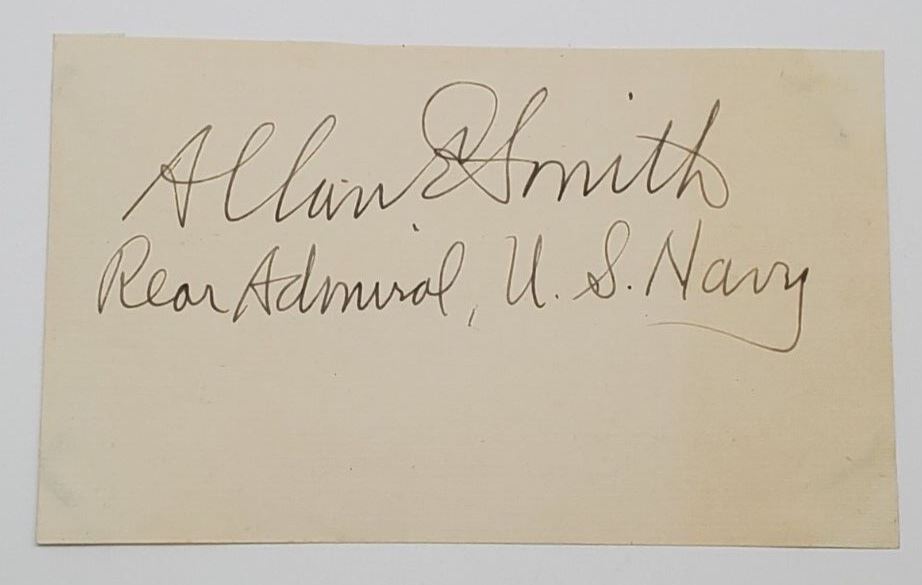 Allan E Smith
Rear Admiral, U. S. Navy